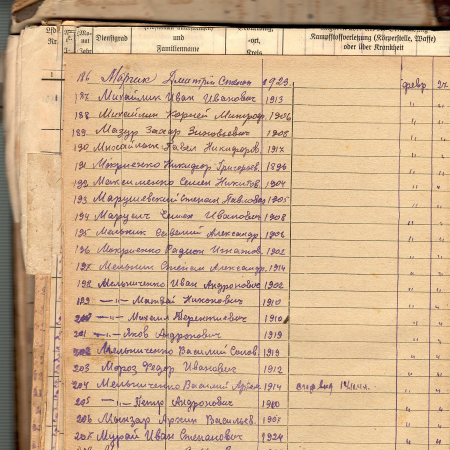 Lfde Nr.
Mo- nat Jahr
Dienstgrad
und
Familienname
ort,
Kreis
Kampfstoffverletzung (Körperstelle, Waffe)
oder über Krankheit
186 Марчик Дмитрий Степан 1923 февр
187 Михайлик Иван Иванович 1913 "
188 Михайлик Корней Митроф. 1906 "
189 Мазур Захар Зиновьевич 1908 "
190 Михайлик Павел Никифоров. 1917 "
191 Мокриенко Никифор Григорьев. 1896 "
192 Максименко Семен Никитов. 1904 "
193 Марушевский Степан Павлович 1905 "
194 Марусич Семен Иванович 1908 "
195 Мельник Евгений Александр. 1906 "
196 Мокриенко Радион Игнатов. 1902 "
197 Мельник Степан Александр. 1914 "
198 Мельниченко Иван Андронович 1902 "
199 —"— Матвей Никонович 1910 "
200 —"— Михаил Терентиевич 1910 "
201 —"— Яков Андронович 1919 "
202 Мельниченко Василий Солов. 1919 "
203 Мороз Федор Иванович 1912 "
204 Мельниченко Василий Артем. 1914 "
205 —"— Петр Андронович 1900 "
206 Архип Васильев. "
207 Мурай Иван Степанович 1924 "